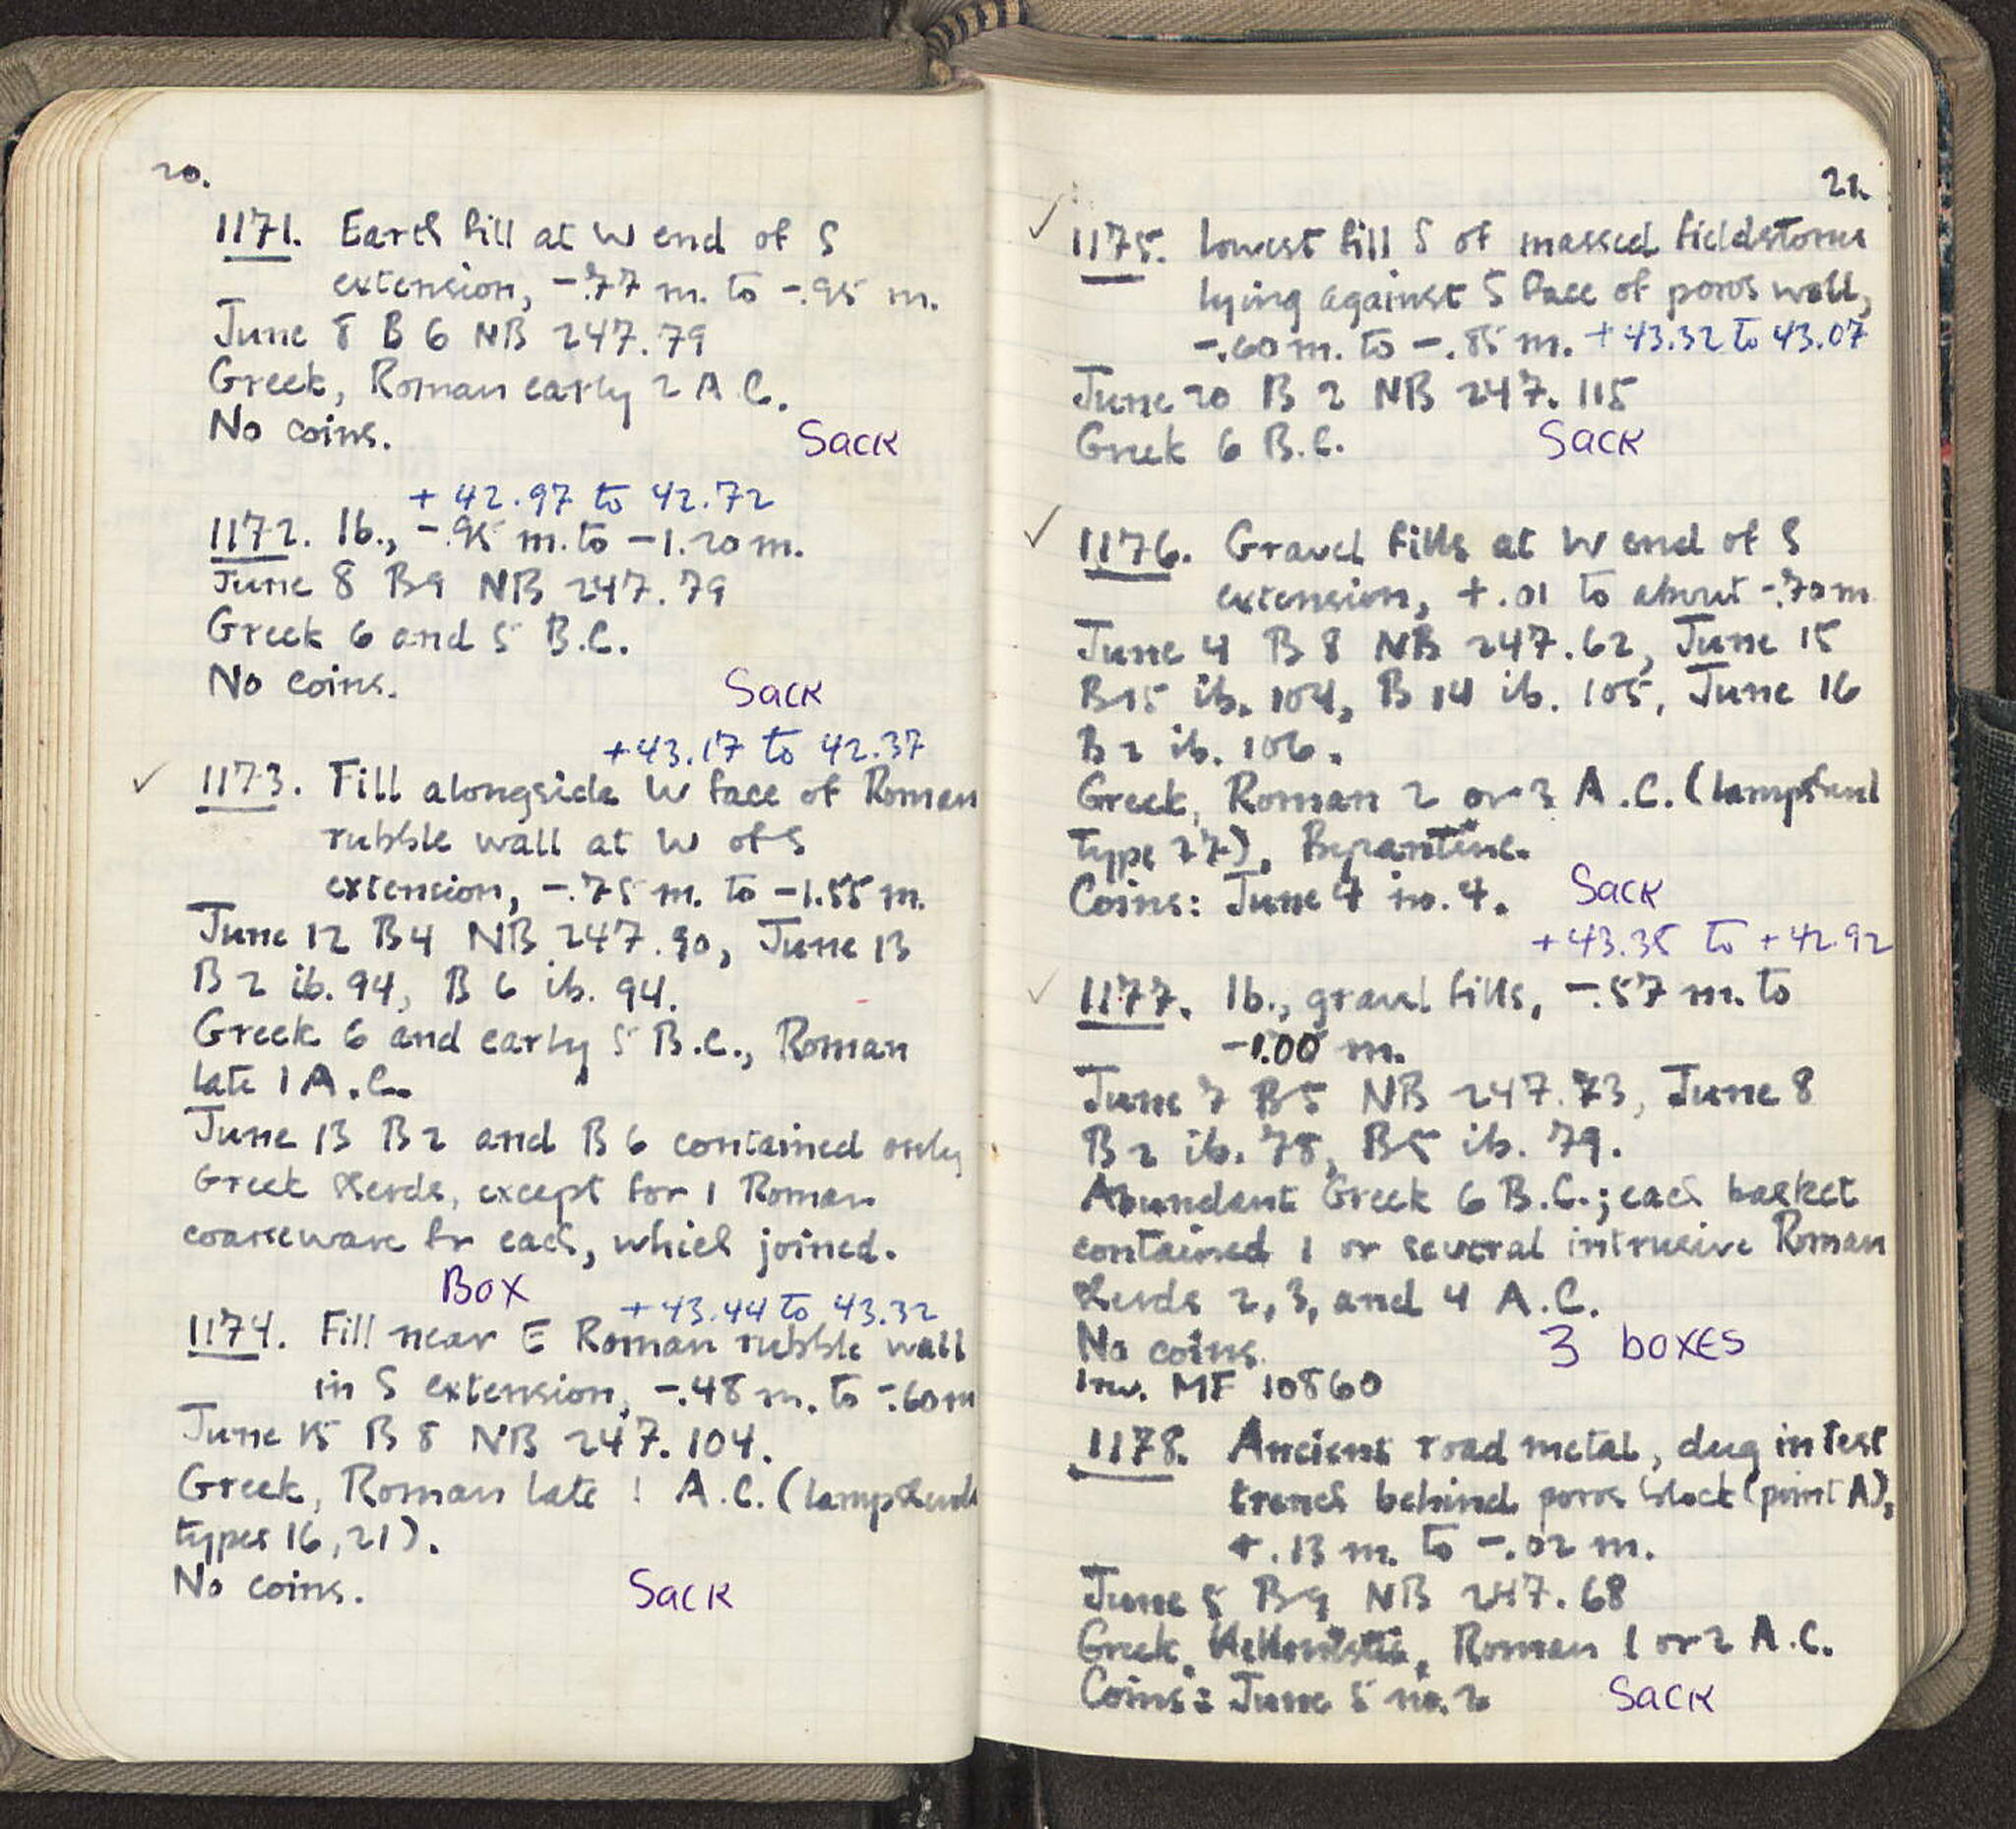 20.
1171. Earth fill at W end of S
extension, -.77 m. to -.95 m.
June 8 B 6 NB 247.79
Greek, Roman early 2 A.C.
No coins.
Sack
+ 42.97 to 42.72
1172. Ib., -.95 m. to -1.20 m.
June 8 B9 NB 247.79
Greek 6 and 5 B.C.
No coins.
Sack
+43.17 to 42.37
✓ 1173. Fill alongside W face of Roman
rubble wall at W of S
extension, -.75 m. to -1.55 m.
June 12 B4 NB 247.90, June 13
B 2 ib. 94, B 6 ib. 94.
Greek 6 and early 5 B.C., Roman
late 1 A.C.
June 13 B 2 and B 6 contained only
Greek sherds, except for 1 Roman
coarseware fr each, which joined.
Box
+43.44 to 43.32
1174. Fill near E Roman rubble wall
in S extension, -.48 m. to -.60 m
June 15 B 8 NB 247.104.
Greek, Roman late 1 A.C. (lamp sherds
types 16, 21).
No coins.
Sack
21.
✓ 1175. Lowest fill S of massed fieldstones
lying against S face of poros wall,
-.60 m. to -.85 m. +43.32 to 43.07
June 20 B 2 NB 247.115
Greek 6 B.C.
Sack
✓ 1176. Gravel fills at W end of S
extension, +.01 to about -.70 m
June 4 B 8 NB 247.62, June 15
B 15 ib. 104, B 14 ib. 105, June 16
B 2 ib. 106.
Greek, Roman 2 or 3 A.C. (lamp sherd
type 27), Byzantine.
Coins: June 4 no. 4.
Sack
+43.35 to +42.92
✓ 1177. Ib., gravel fills, -.57 m. to
-1.00 m.
June 7 B5 NB 247.73, June 8
B 2 ib. 78, B5 ib. 79.
Abundant Greek 6 B.C.; each basket
contained 1 or several intrusive Roman
sherds 2, 3, and 4 A.C.
No coins.
3 boxes
Inv. MF 10860
1178. Ancient road metal, dug in test
trench behind poros block (point A),
+.13 m. to -.02 m.
June 5 B9 NB 247.68
Greek, Hellenistic, Roman 1 or 2 A.C.
Coins: June 5 no. 2
Sack